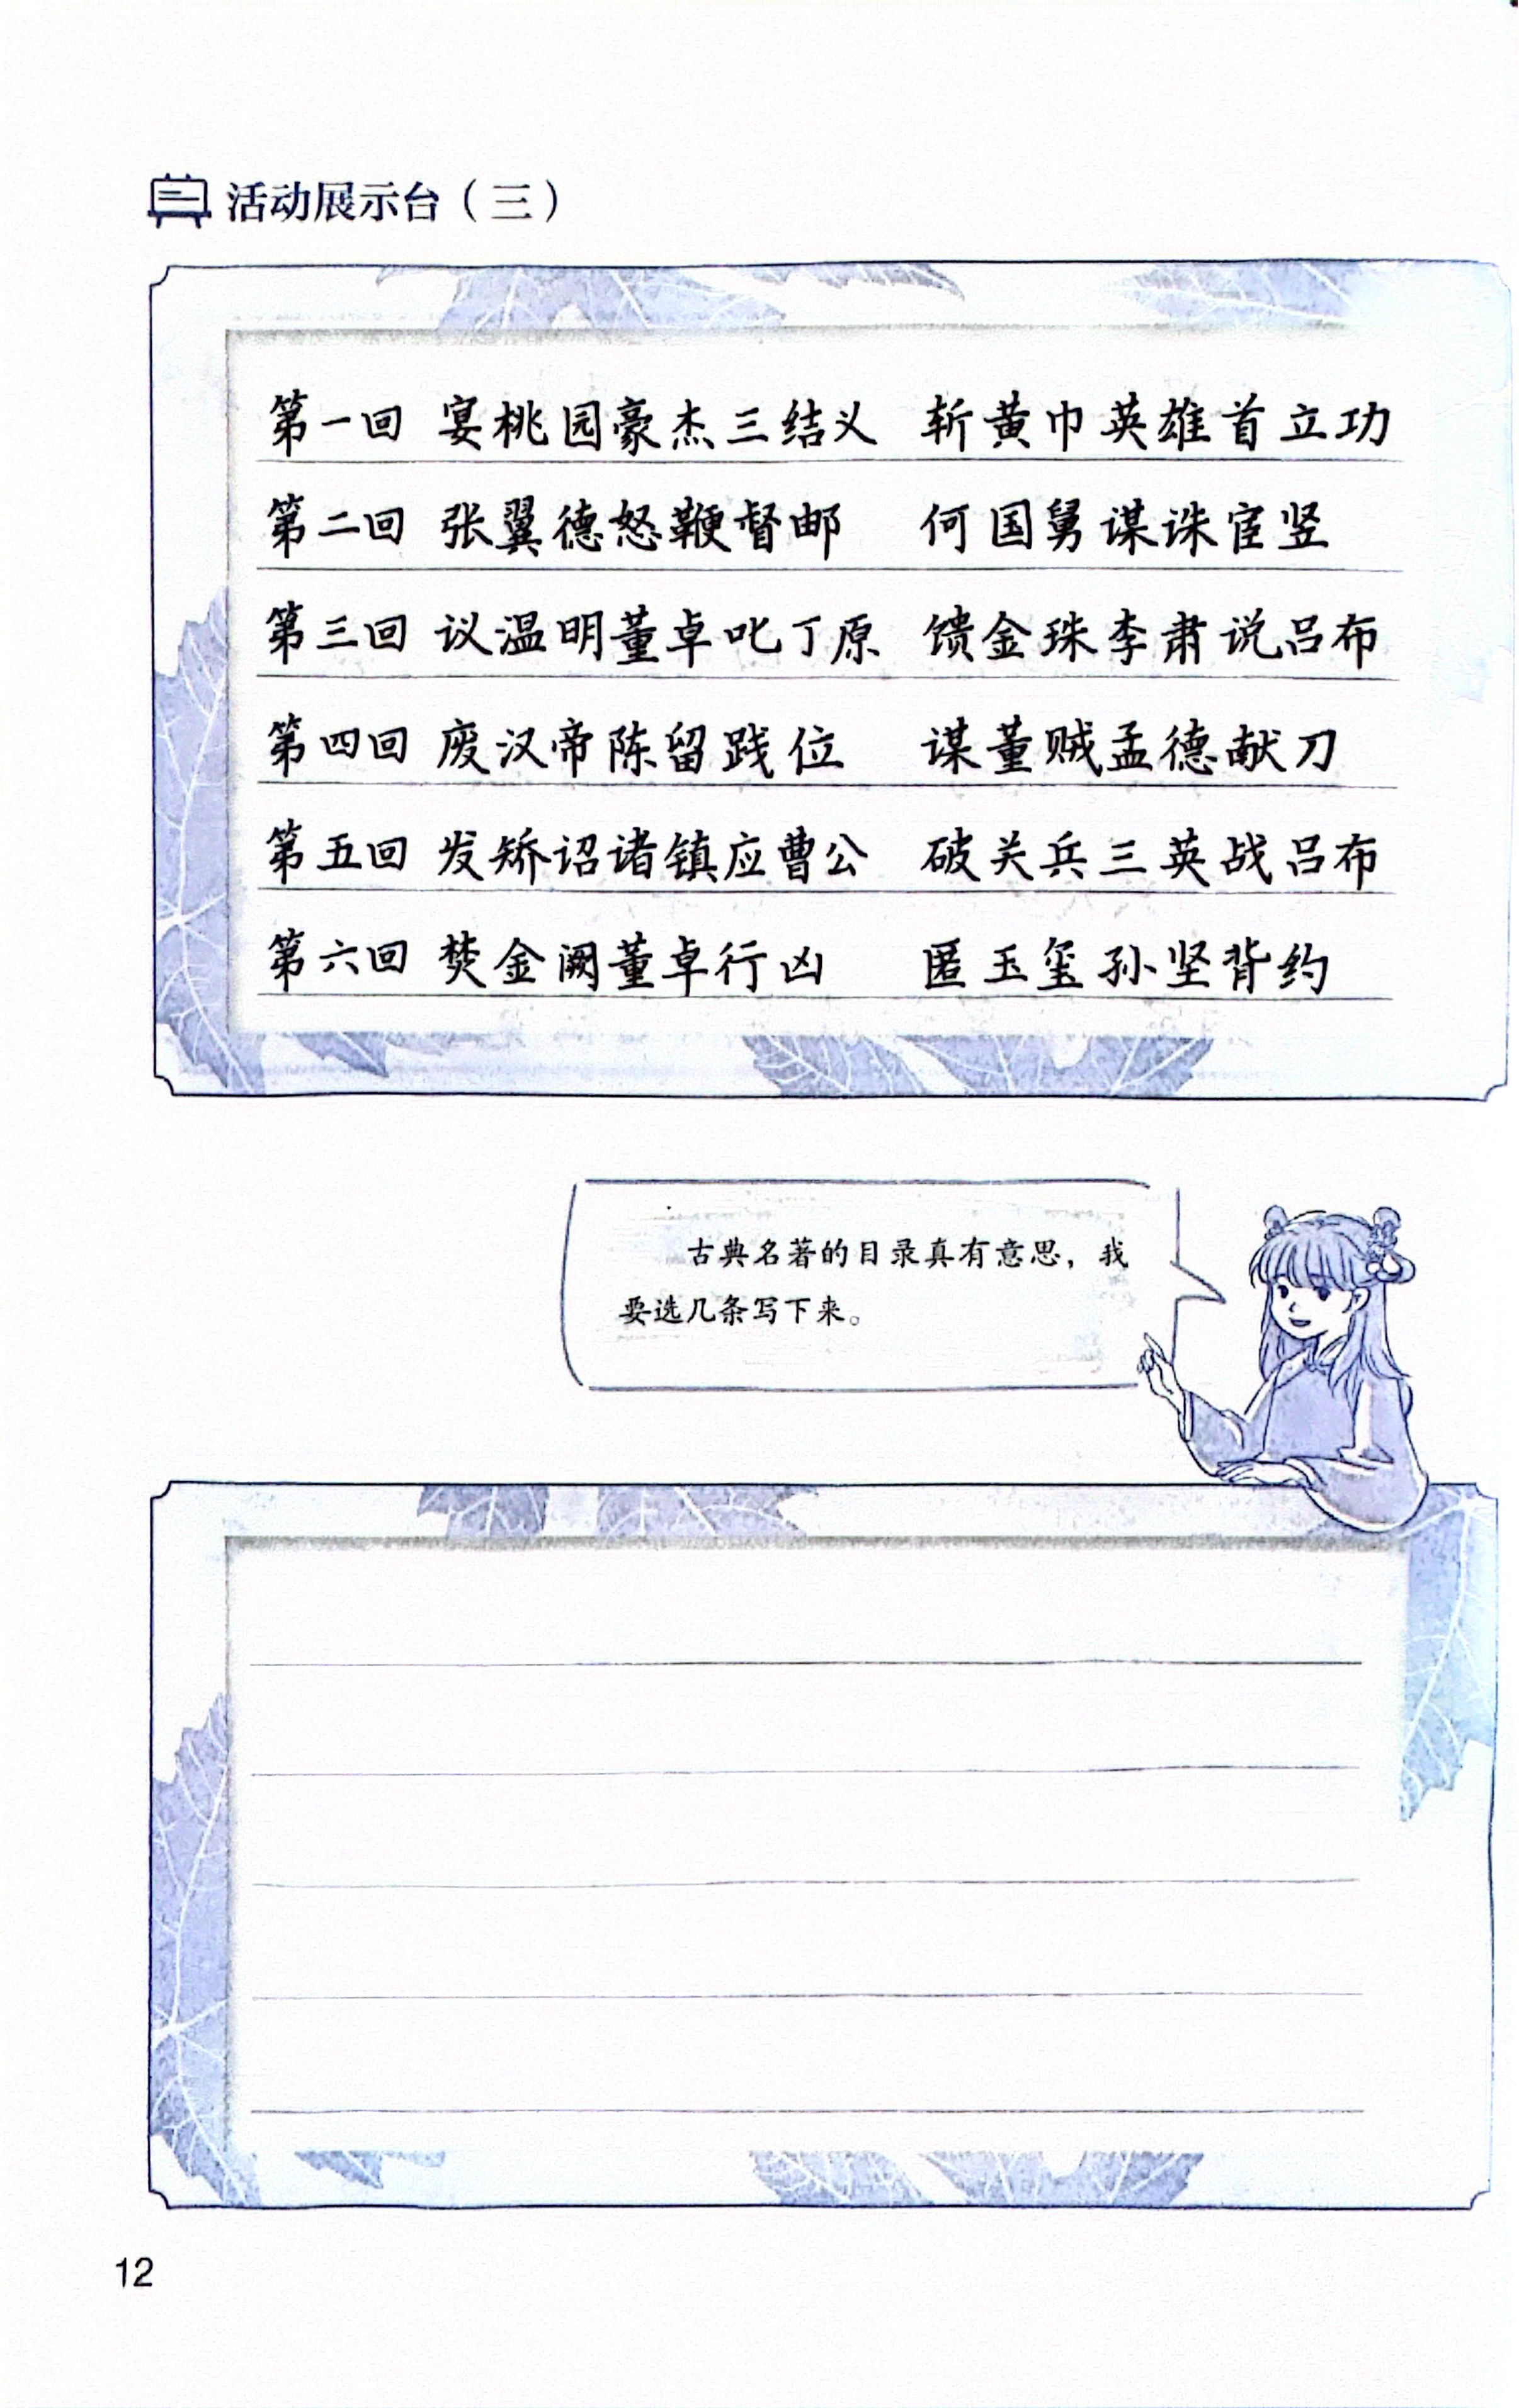 活动展示台（三）
第一回 宴桃园豪杰三结义 斩黄巾英雄首立功
第二回 张翼德怒鞭督邮 何国舅谋诛宦竖
第三回 议温明董卓叱丁原 馈金珠李肃说吕布
第四回 废汉帝陈留践位 谋董贼孟德献刀
第五回 发矫诏诸镇应曹公 破关兵三英战吕布
第六回 焚金阙董卓行凶 匿玉玺孙坚背约
古典名著的目录真有意思，我
要选几条写下来。
12